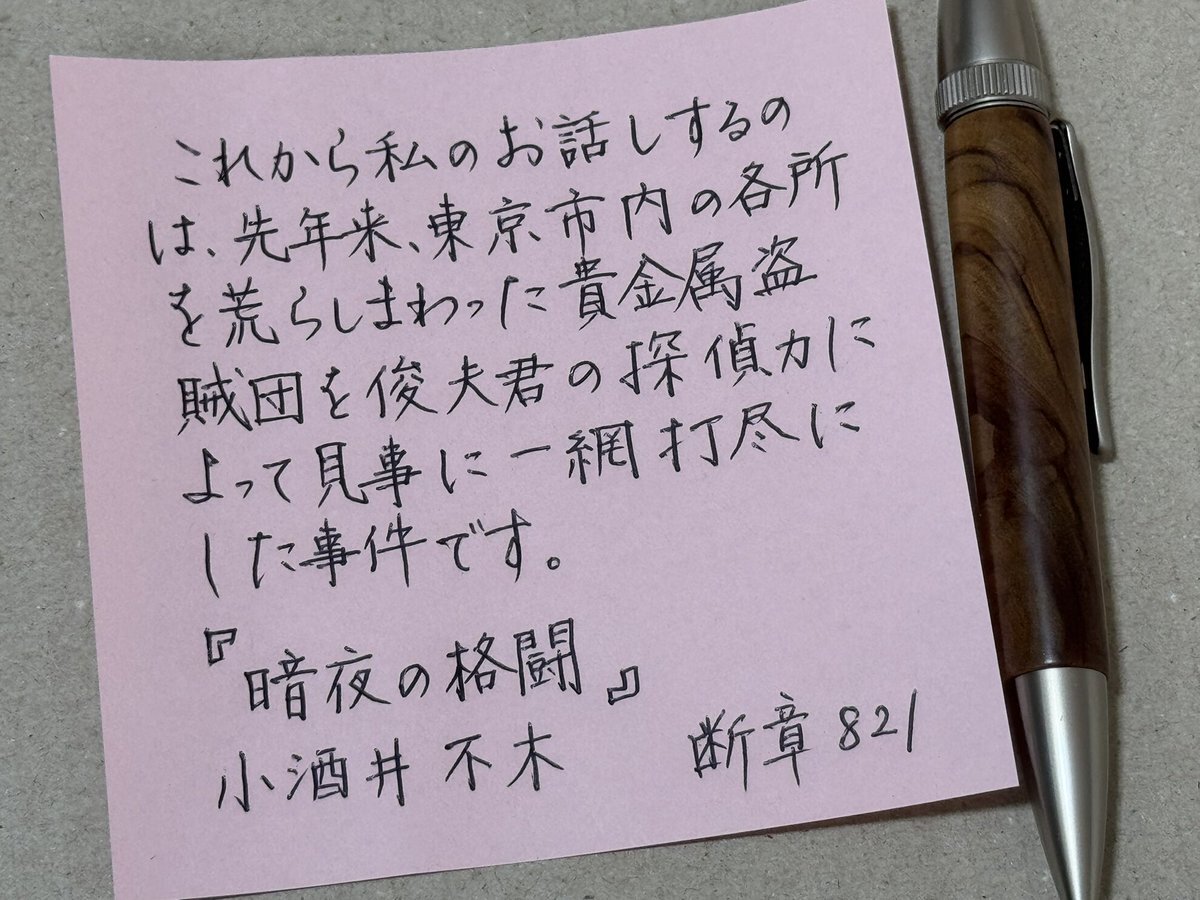 これから私のお話しするの
は、先年来、東京市内の各所
を荒らしまわった貴金属盗
賊団を俊夫君の探偵力に
よって見事に一網打尽に
した事件です。
『暗夜の格闘』
小酒井不木 断章821